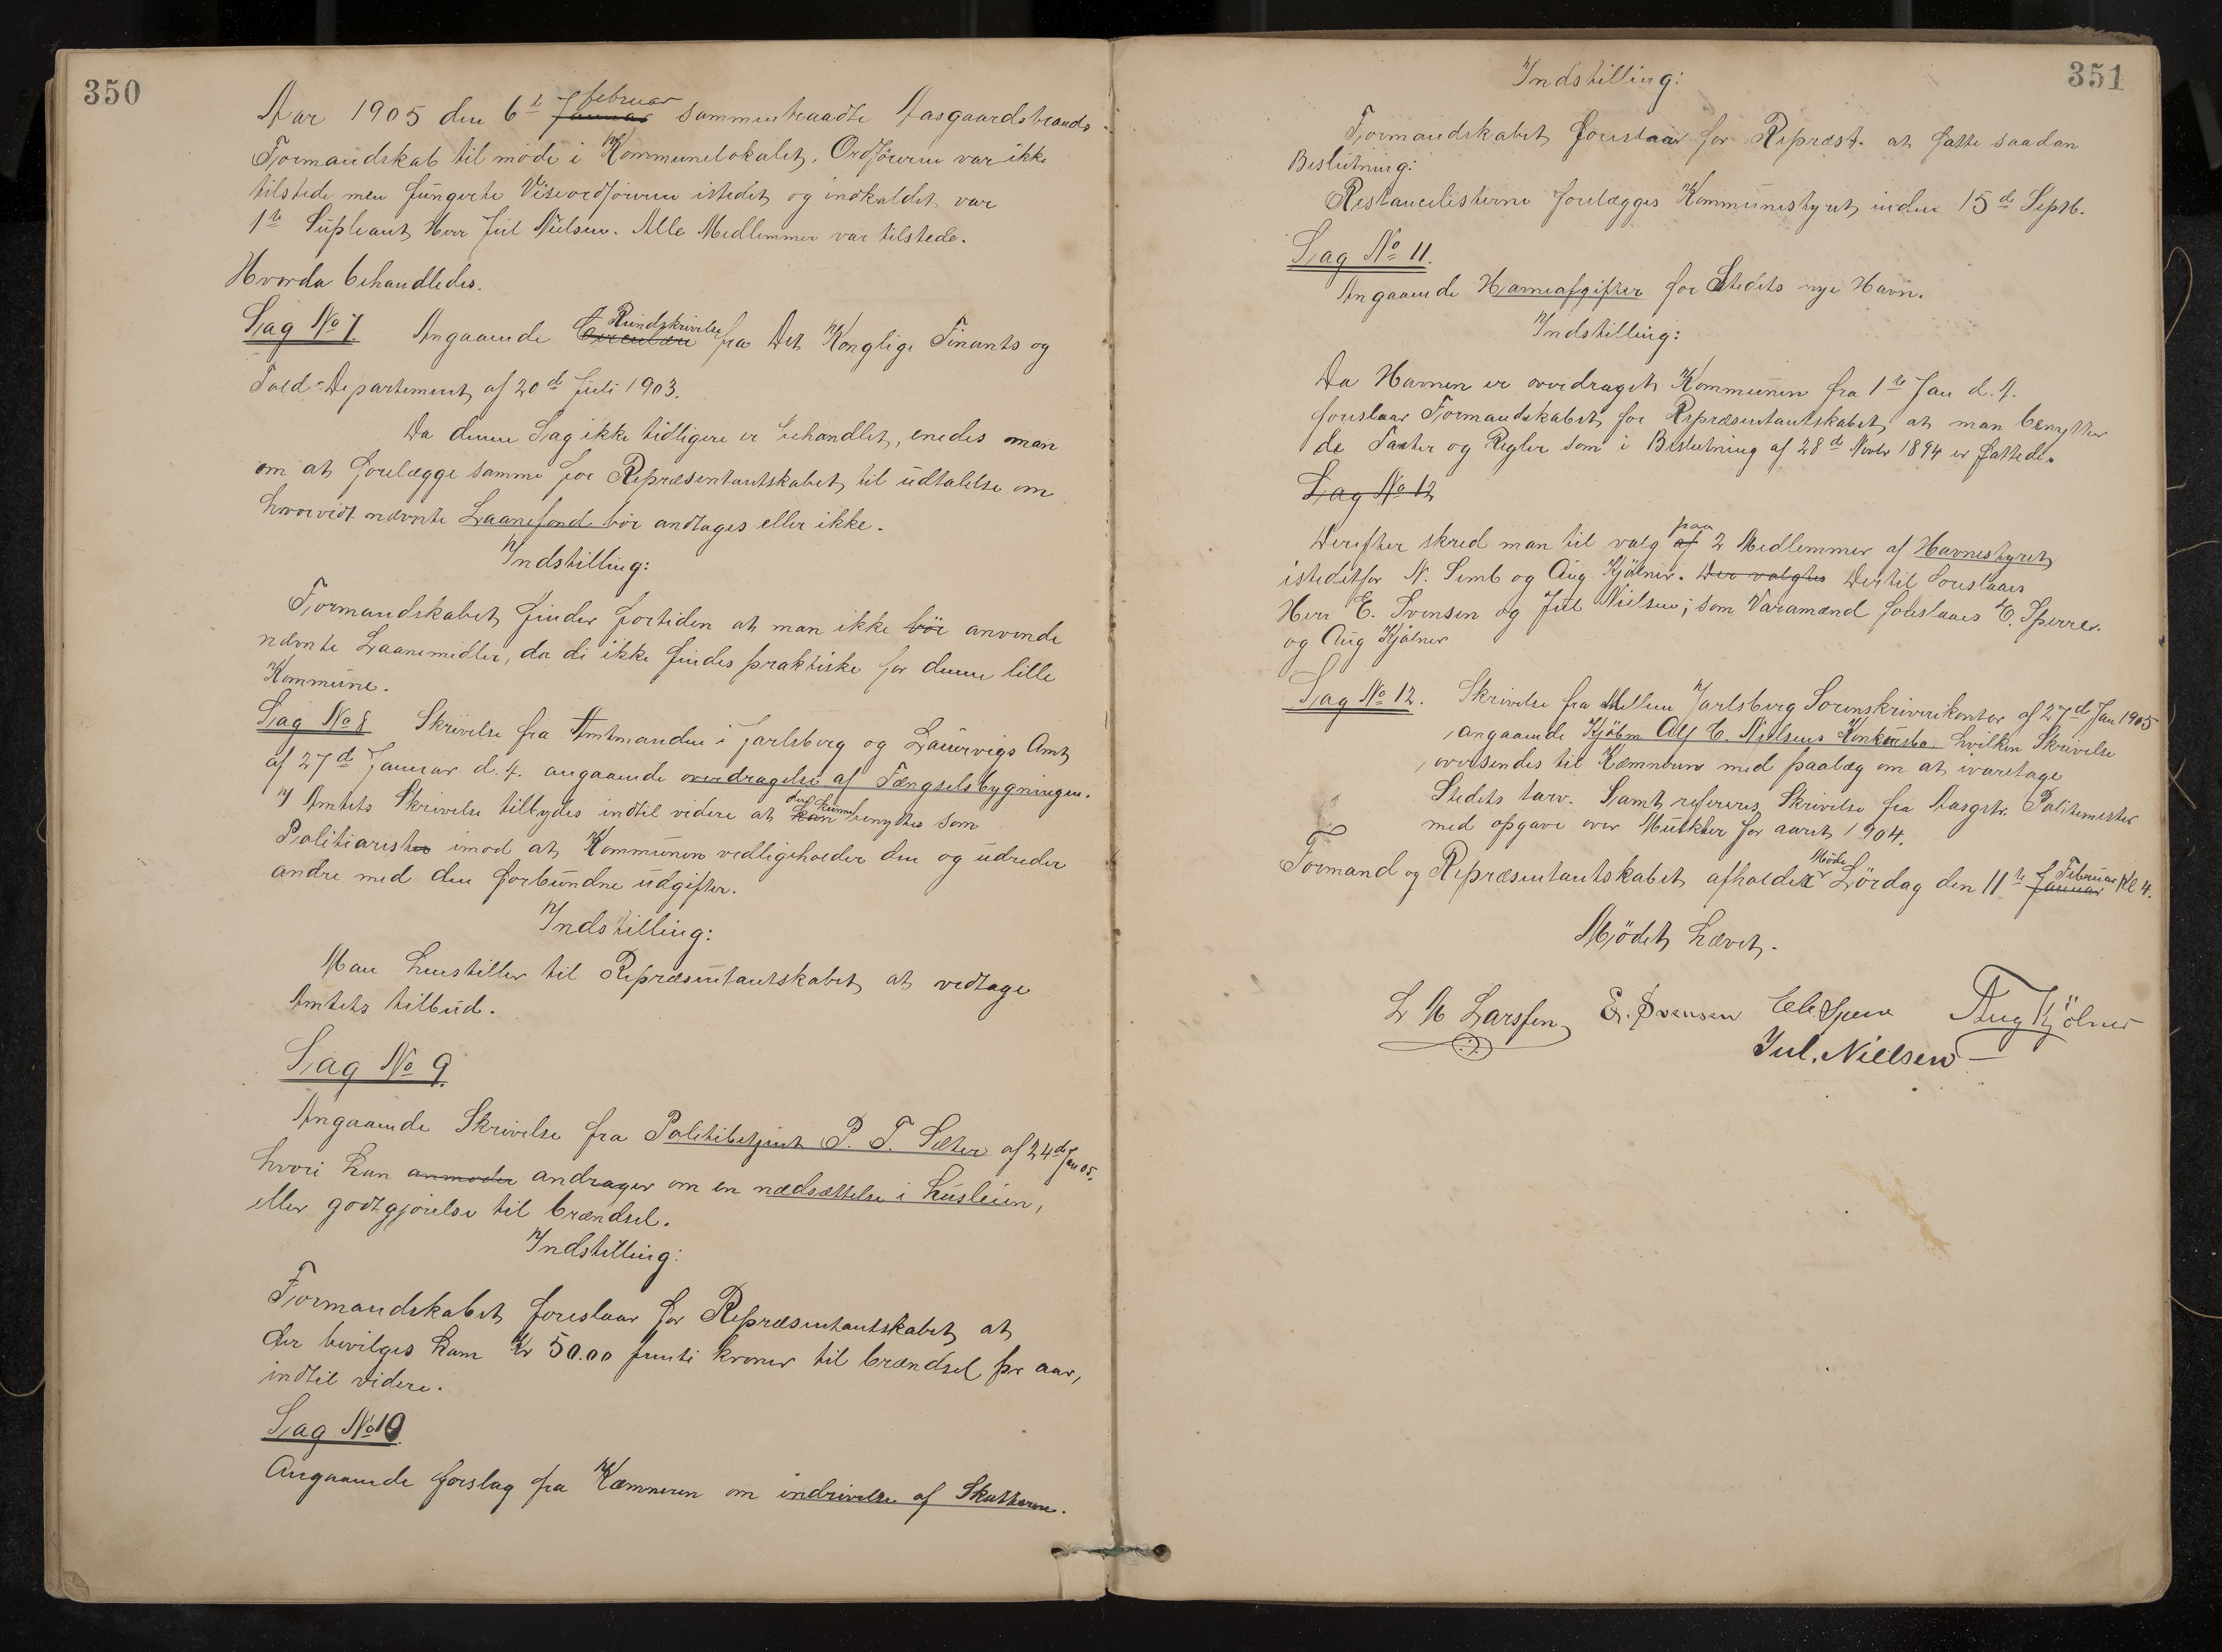 350
Aar 1905 den 6te februar Januar sammentraadte Aasgaardstrands
Formandskab til møde i Kommunelokalet. Ordføreren var ikke
tilstede men fungerte Viseordføreren istedet og indkaldet var
1ste Supleant Herr Jul Nielsen. Alle Medlemmer var tilstede.
Hvorda behandledes.
Sag No 7. Angaaende Circulære Rundskrivelse fra Det Konglige Finants og
Told-Departement af 20de Juli 1903.
Da denne Sag ikke tidligere er behandlet, enedes man
om at forelægge samme for Repræsentantskabet til udtalelse om
hvorvidt nævnte Laanefond bør andtages eller ikke.
Indstilling:
Formandskabet finder fortiden at man ikke bör anvende
nævnte Laanemidler, da di ikke findes praktiske for denne lille
Kommune.
Sag No 8 Skrivelse fra Amtmanden i Jarlsberg og Laurvigs Amt
af 27de Januar d.A. angaaende overdragelse af Fængselsbygningen.
I Amtets Skrivelse tilbydes indtil videre at kan den kunne benyttes som
Politiarest imod at Kommunen vedligeholder den og udreder
andre med den forbundne udgifter.
Indstilling:
Man henstiller til Repræsentantskabet at vedtage
Amtets tilbud.
Sag No 9.
Angaaende Skrivelse fra Politibetjent P. T. Sæter af 24de Jan 05.
hvori han anmoder andrager om en nedsættelse i husleien,
eller godtgjørelse til brændsel.
Indstilling:
Formandskabet foreslaar for Repræsentantskabet at
der bevilges ham Kr 50.00 femti kroner til brændsel pr aar,
indtil videre.
Sag No 10.
Angaaende forslag fra Kæmneren om inddrivelse af Skatterne.
351
Indstilling:
Formandskabet foreslaar for Repræst. at fatte saadan
Beslutning:
Restancelisterne forelægges Kommunestyret inden 15de Septb.
Sag No 11.
Angaaende Havneafgifter for Stedets nye Havn.
Indstilling:
Da Havnen er overdraget Kommunen fra 1ste Jan d.A.
foreslaar Formandskabet for Repræsentantskabet at man benytter
de Taxter og Regler som i Beslutning af 28de Novbr 1894 er fattede.
Sag No 12
Derefter skred man til valg af paa 2 Medlemmer af Havnestyret
istedetfor N. Semb og Aug Kjölner. Der valgtes Dertil foreslaaes
Herr E. Svensen og Jul Nielsen; som Varamænd foreslaaes E. Sperre.
og Aug Kjølner
Sag No 12. Skrivelse fra Mellem Jarlsberg Sorenskriverikontor af 27de Jan 1905
angaaende Kjøbm Alf E. Nielsens Konkursbo hvilken Skrivelse
oversendes til Kæmneren med paalæg om at ivaretage
Stedets tarv. Samt refereres Skrivelse fra Aasgstr. Politimester
med opgave over Mulkter for aaret 1904.
Formand og Repræsentantskabet afholder Møde Lördag den 11te Februar Januar Kl 4.
Mödet hævet.
L M Larssen E. Svensen El Sperre Aug Kjölner
Jul. Nielsen